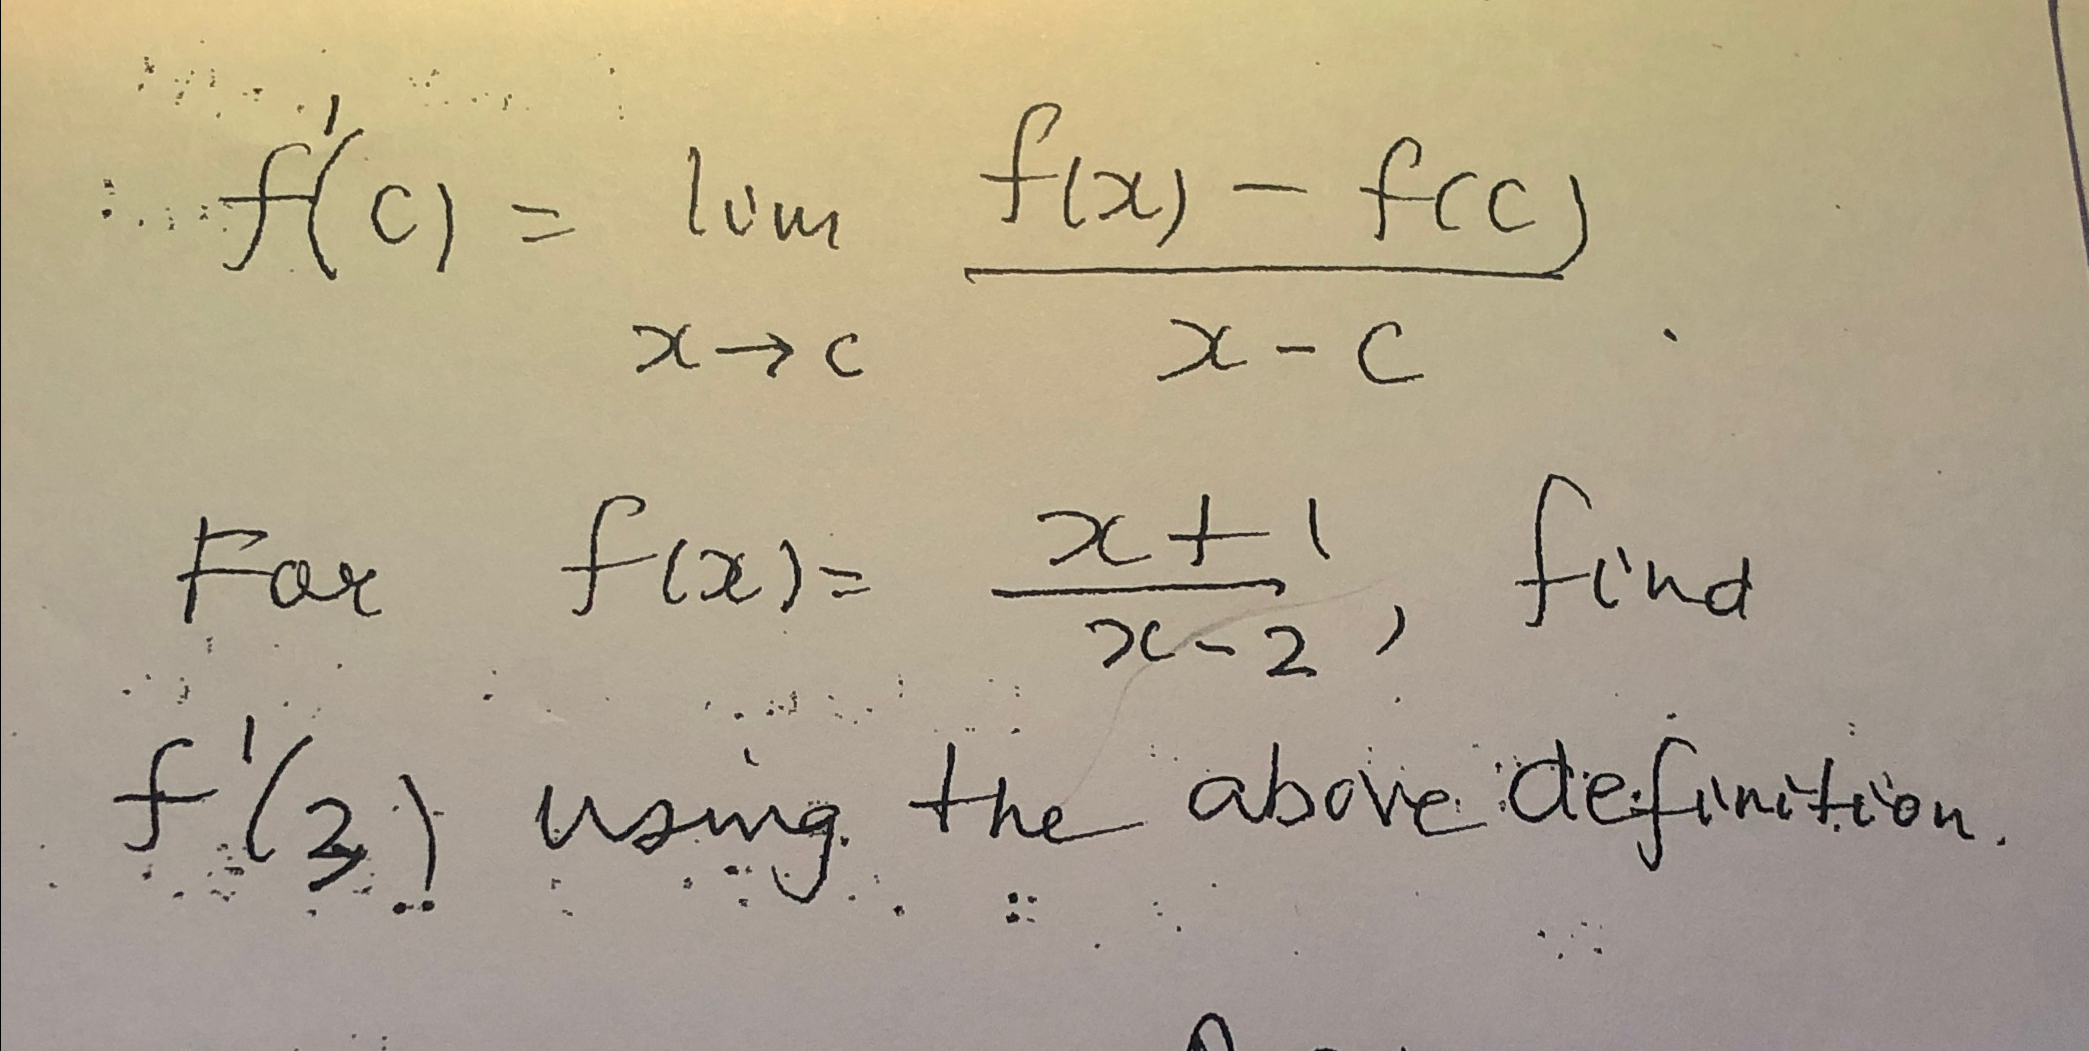 f'(c) = lim f(x) - f(c)
x→c x - c
For f(x) = x+1 / x-2, find
f'(3) using the above definition.